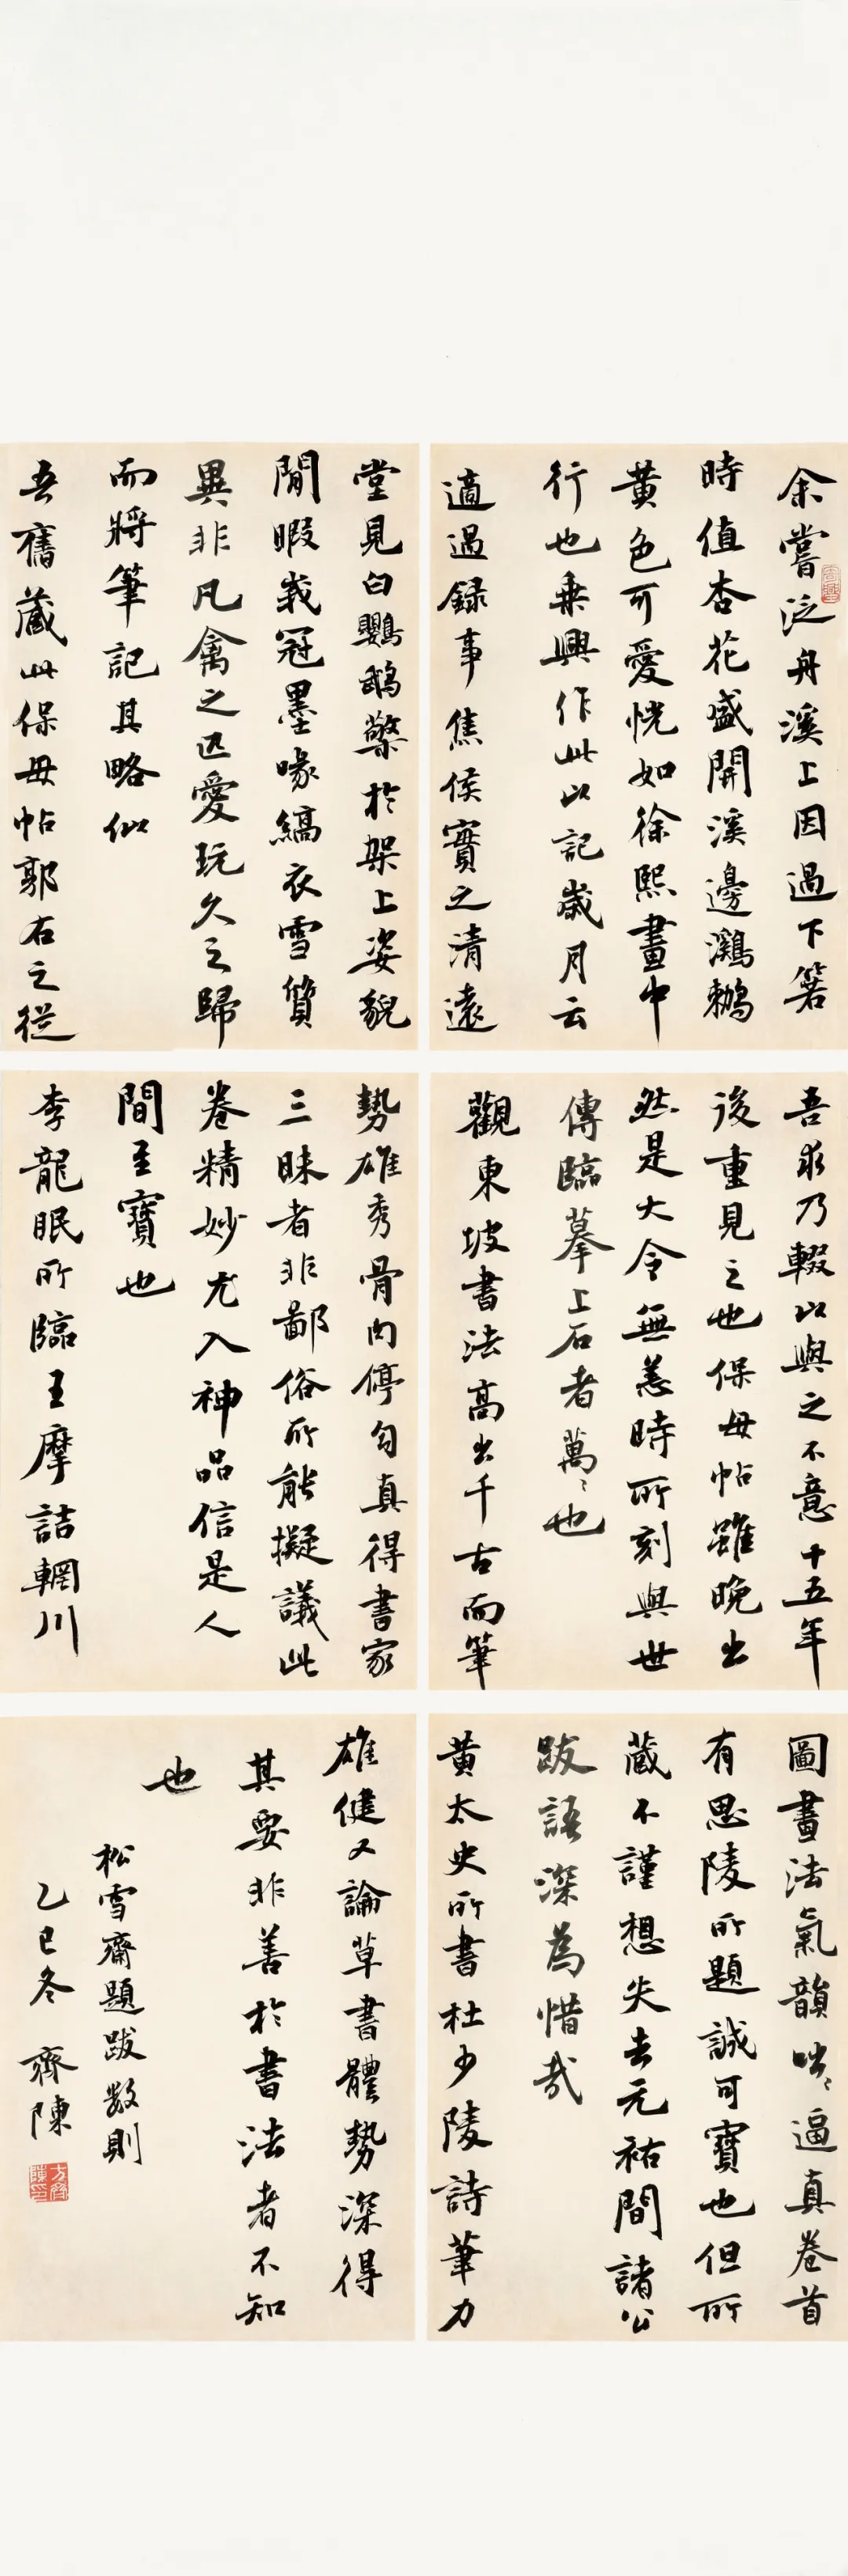 余嘗泛舟溪上因過下箬
時值杏花盛開溪邊鸂鶒
黃色可愛恍如徐熙畫中
行也乘興作此以記歲月云
適過録事焦侯實之清遠
堂見白鸚鵡檠於架上姿貌
閒暇峩冠墨喙縞衣雪質
異非凡禽之匹愛玩久之歸
而將筆記其略似
吾舊藏此保母帖郭右之從
吾求乃輟以與之不意十五年
後重見之也保母帖雖晚出
然是大令無恙時所刻與世
傳臨摹上石者萬〻也
觀東坡書法高出千古而筆
勢雄秀骨肉停勻真得書家
三昧者非鄙俗所能擬議此
卷精妙尤入神品信是人
間至寶也
李龍眠所臨王摩詰輞川
圖畫法氣韻咄〻逼真卷首
有思陵所題誠可寶也但所
藏不謹想失去元祐間諸公
跋語深為惜哉
黄太史所書杜少陵詩筆力
雄健又論草書體勢深得
其要非善於書法者不知
也
松雪齋題跋数則
乙巳冬 齊陳